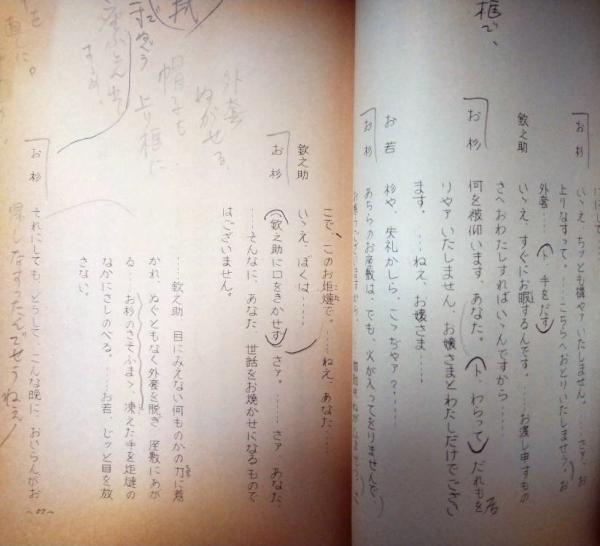 框で、
お杉
いゝえ、ちッとも構やァいたしません。……さァ、お
上りなすって。……こちらへおとりいたしませう、お
外套……（ト 手をだす
欽之助
いゝえ、すぐにお暇するんです。……お渡し申すもの
さへおわたしすればいゝんですから……
お杉
何を被仰います、あなた。（ト、わらって）だれも居
りやァいたしません、お嬢さまとわたしだけでござい
ます。……ねえ、お嬢さま……
お若
杉や、失礼かしら、こっちゃァ？……
お杉
あちらのお座敷は、でも、火が入ってをりませんで、
こで、このお炬燵で。……ねえ、あなた……
欽之助
いゝえ、ぼくは……
お杉
（欽之助に口をきかせず）さァ。……さァ あなた、
……そんなに、あなた、世話をお焼かせになるもので
はございません。
……欽之助 目にみえない何ものかの力に惹
かれ、ぬぐともなく外套を脱ぎ 座敷にあが
る……お杉のさそふまゝ、凍えた手を炬燵の
なかにさしのべる。……お若 じッと目を放
さない。
お杉
それにしても、どうして、こんな晩に、おいらんがお
外套
ぬがせる、
帽子も
上り框に
直しに。